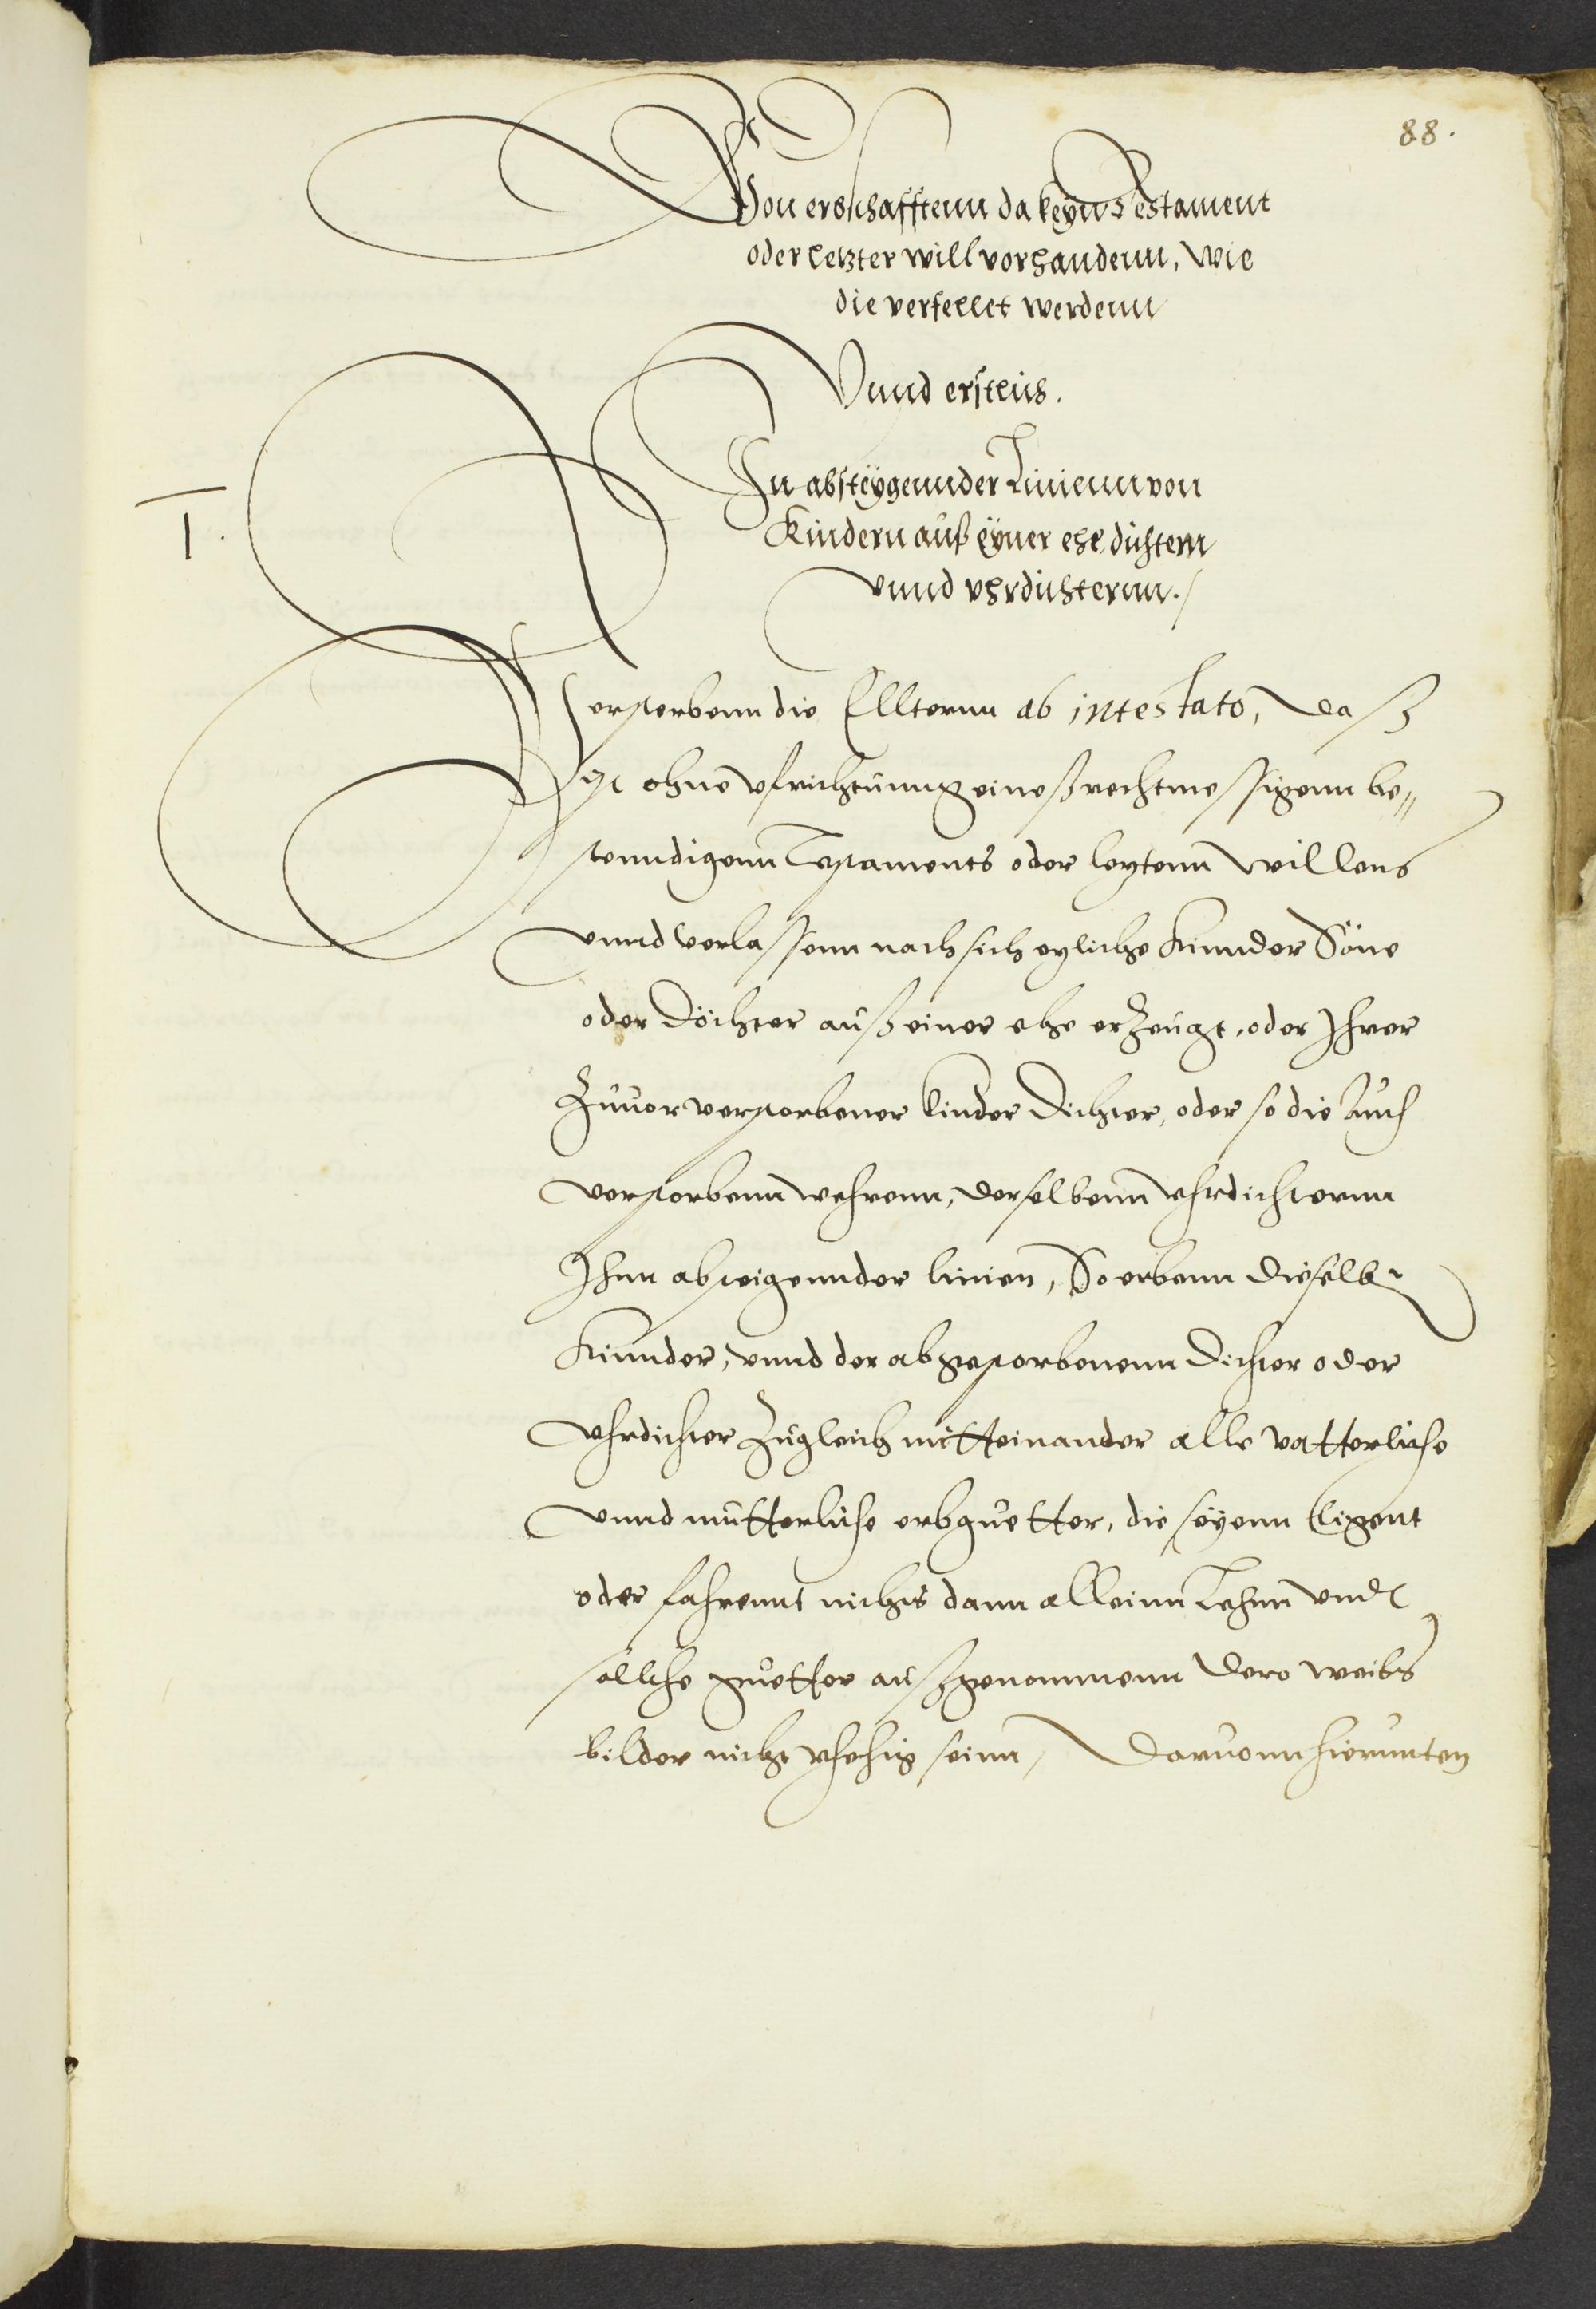 88.
Von erbschafftenn da keyn Testament
oder letzter will vorhandenn, wie
die verfellet werdenn
Vnnd erstens.
I.
In absteygennder Linienn von
Kindern auß eyner ehe dichtern
vnnd vhrdichternn.
Versterbenn die Elltternn ab intestato, daß
ist ohne vfrichtunng eineß rechtmessigenn be„
stenndigenn Testaments oder letztenn willens
vnnd verlassenn nach sich etzliche Kinnder Söne
oder Döchter auß einer ehe erzeugt, oder Ihrer
zuuor verstorbener kinder Dichter, oder so die auch
verstorbenn wehrenn, derselbenn vhrdichternn
Ihnn absteigennder linien, So erbenn dieselbe
Kinnder, vnnd der abgestorbenenn Dichter oder
vhrdichter zugleich mitteinander alle vatterliche
vnnd mutterliche erbguetter, die seyenn ligent
oder fahrennt nichts dann alleinn Lehnn vnd
sollche guetter außgenommenn dero weibs
bilder nicht vhehig seinn, Daruonn hierunten